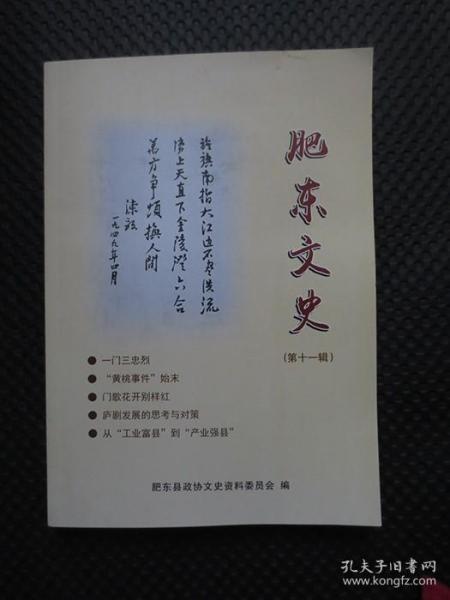 肥东文史
(第十一辑)
旌旗南指大江边不尽洪流
涌上天直下金陵澄六合
万方争颂换人间
陈毅
一九四九年四月
● 一门三忠烈
● “黄桃事件”始末
● 门歌花开别样红
● 庐剧发展的思考与对策
● 从“工业富县”到“产业强县”
肥东县政协文史资料委员会 编
孔夫子旧书网
www.kongfz.com